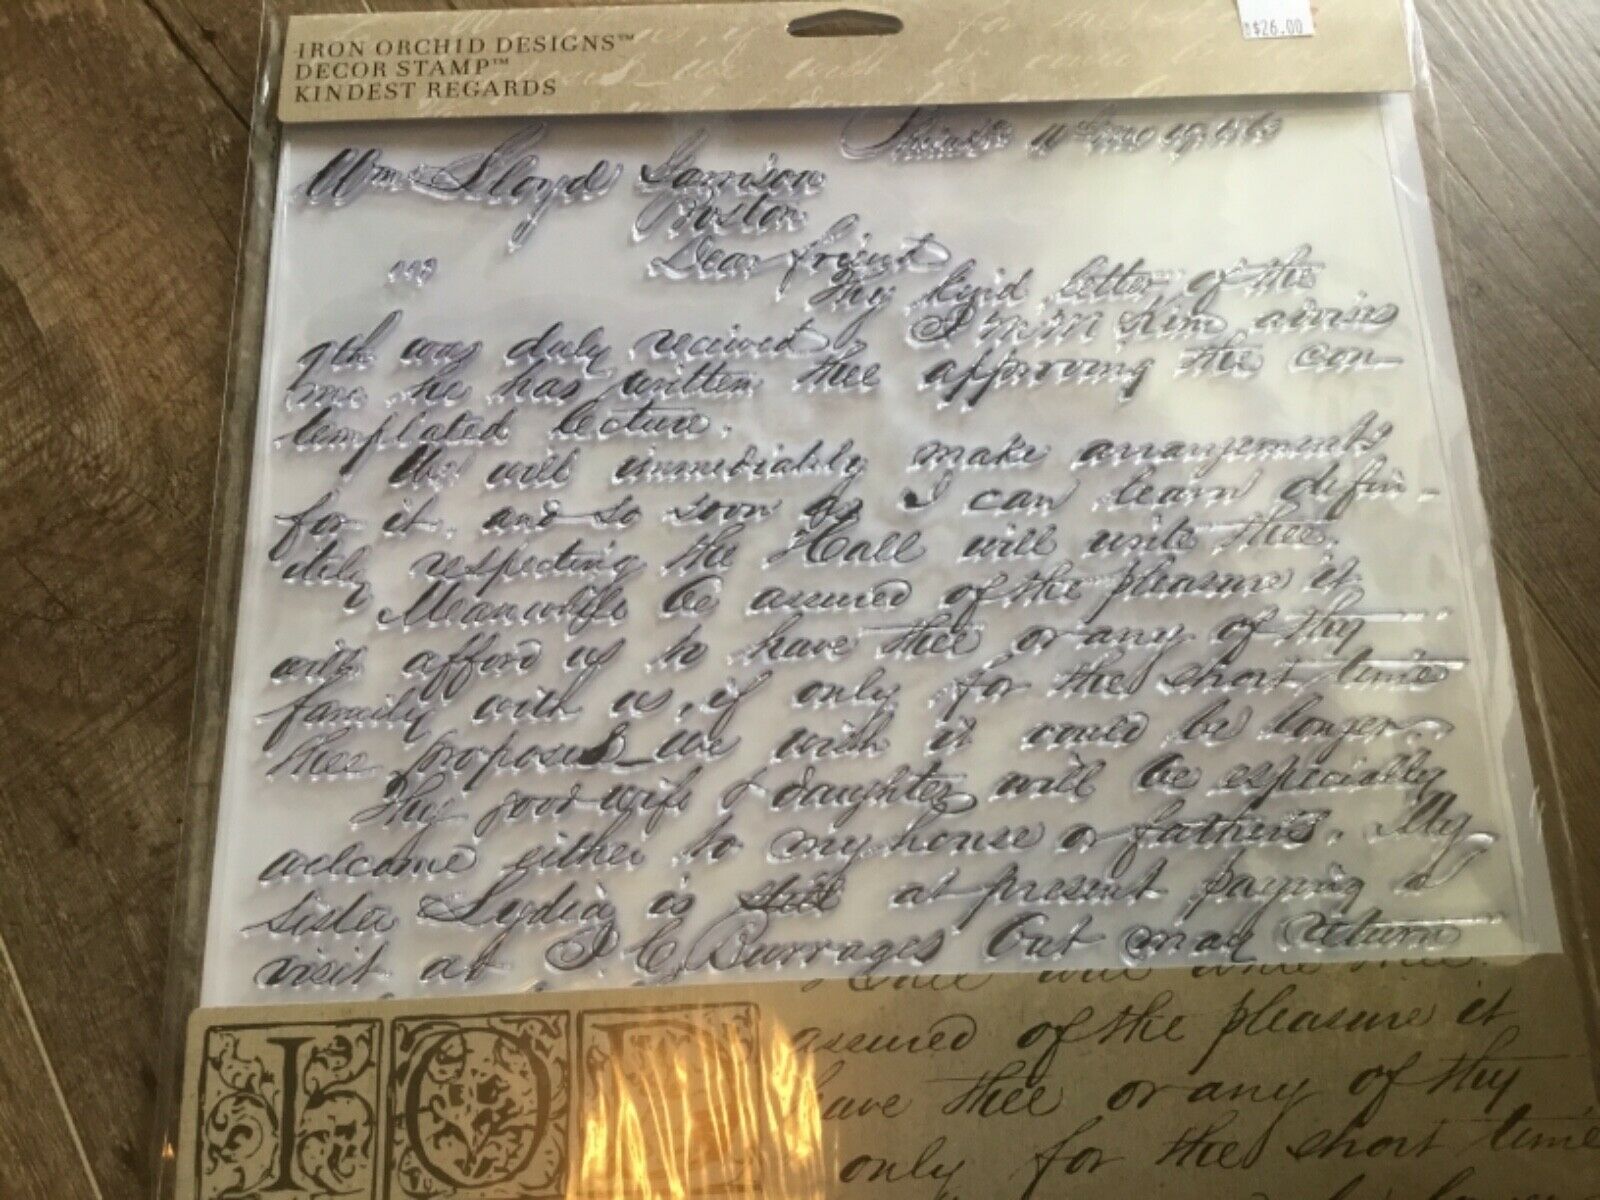 IRON ORCHID DESIGNS™
DECOR STAMP™
KINDEST REGARDS
$26.00
Wm Lloyd Garrison
Boston
Dear friend
Thy kind letter of the
9th was duly recieved. him advises
me he has written thee approving the con-
templated lecture.
We will immediately make arrangements
for it, and so soon as I can learn defin-
itely respecting the Hall will write thee.
Meanwhile be assured of the pleasure it
will afford us to have thee or any of thy
family with us, if only for the short time
thee proposes_we wish it could be longer.
Thy good wife & daughter will be especially
welcome either to my house or fathers. My
sister Lydia is still at present paying a
visit at I C Burrages but may return
Hall will write thee.
assured of the pleasure it
have thee or any of thy
only for the short time
IOD